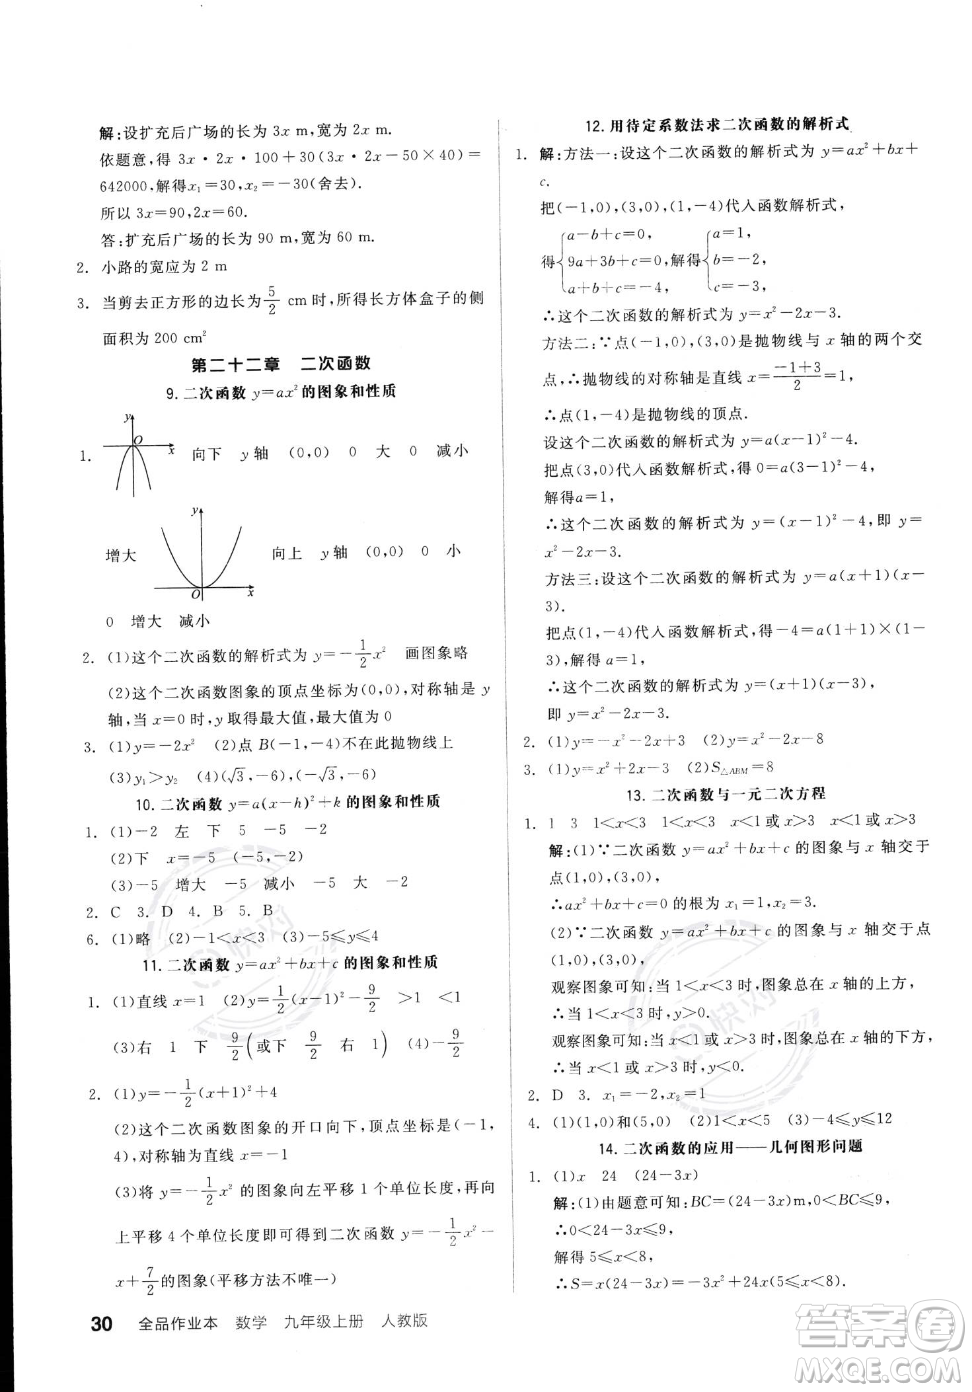 解:设扩充后广场的长为 3x m,宽为 2x m.
依题意,得 3x·2x·100+30(3x·2x-50×40)=
642000,解得x₁=30,x₂=-30(舍去).
所以 3x=90,2x=60.
答:扩充后广场的长为 90 m,宽为 60 m.
2. 小路的宽应为 2 m
3. 当剪去正方形的边长为5/2 cm时,所得长方体盒子的侧
面积为 200 cm²
第二十二章 二次函数
9.二次函数 y=ax²的图象和性质
1. y O x 向下 y轴 (0,0) 0 大 0 减小
增大 y O x 向上 y轴 (0,0) 0 小
0 增大 减小
2. (1)这个二次函数的解析式为 y=-1/2x² 画图象略
(2)这个二次函数图象的顶点坐标为(0,0),对称轴是 y
轴,当 x=0时,y取得最大值,最大值为0
3. (1)y=-2x² (2)点 B(-1,-4)不在此抛物线上
(3)y₁>y₂ (4)(√3,-6),(-√3,-6)
10.二次函数 y=a(x-h)²+k的图象和性质
1. (1)-2 左 下 5 -2 -5
(2)下 x=-5 (-5,-2)
(3)-5 增大 -5 减小 -5 大 -2
2. C 3. D 4. B 5. B
6. (1)略 (2)-1<x<3 (3)-5≤y≤4
11.二次函数 y=ax²+bx+c的图象和性质
1. (1)直线 x=1 (2)y=1/2(x-1)²-9/2 >1 <1
(3)右 1 下 9/2(或下 9/2 右 1) (4)-9/2
2. (1)y=-1/2(x+1)²+4
(2)这个二次函数图象的开口向下,顶点坐标为(-1,
4),对称轴为直线 x=-1
(3)将 y=-1/2x²的图象向左平移1个单位长度,再向
上平移4个单位长度即可得到二次函数 y=-1/2x²-
x+7/2的图象(平移方法不唯一)
12.用待定系数法求二次函数的解析式
1. 解:方法一:设这个二次函数的解析式为 y=ax²+bx+
c.
把(-1,0),(3,0),(1,-4)代入函数解析式,
得{a-b+c=0, 9a+3b+c=0, a+b+c=-4, 解得{a=1, b=-2, c=-3.
∴这个二次函数的解析式为 y=x²-2x-3.
方法二:∵点(-1,0),(3,0)是抛物线与 x 轴的两个交
点,∴抛物线的对称轴是直线 x=(-1+3)/2=1,
∴点(1,-4)是抛物线的顶点.
设这个二次函数的解析式为 y=a(x-1)²-4.
把点(3,0)代入函数解析式,得 0=a(3-1)²-4,
解得a=1,
∴这个二次函数的解析式为 y=(x-1)²-4,即 y=
x²-2x-3.
方法三:设这个二次函数的解析式为 y=a(x+1)(x-
3).
把点(1,-4)代入函数解析式,得-4=a(1+1)×(1-3),
解得a=1,
∴这个二次函数的解析式为 y=(x+1)(x-3),
即 y=x²-2x-3.
2. (1)y=-x²-2x+3 (2)y=x²-2x-8
3. (1)y=x²+2x-3 (2)S△ABM=8
13.二次函数与一元二次方程
1. 1 3 1<x<3 1<x<3 x<1或x>3 x<1或x>3
解:(1)∵二次函数 y=ax²+bx+c的图象与 x 轴交于
点(1,0),(3,0),
∴ax²+bx+c=0的根为 x₁=1,x₂=3.
(2)∵二次函数 y=ax²+bx+c的图象与 x 轴交于点
(1,0),(3,0),
观察图象可知:当 1<x<3 时,图象总在 x 轴的上方,
∴当 1<x<3时,y>0.
观察图象可知:当 x<1或 x>3时,图象总在 x 轴的下方,
∴当 x<1或 x>3时,y<0.
2. D 3. x₁=-2,x₂=1
4. (1)(1,0)和(5,0) (2)1<x<5 (3)-4≤y≤12
14.二次函数的应用——几何图形问题
1. (1)x 24 (24-3x)
解:(1)由题意可知:BC=(24-3x)m,0<BC≤9,
∴0<24-3x≤9,
解得 5≤x<8,
∴S=x(24-3x)=-3x²+24x(5≤x<8).
30 全品作业本 数学 九年级上册 人教版
答案圈
MXQE.COM